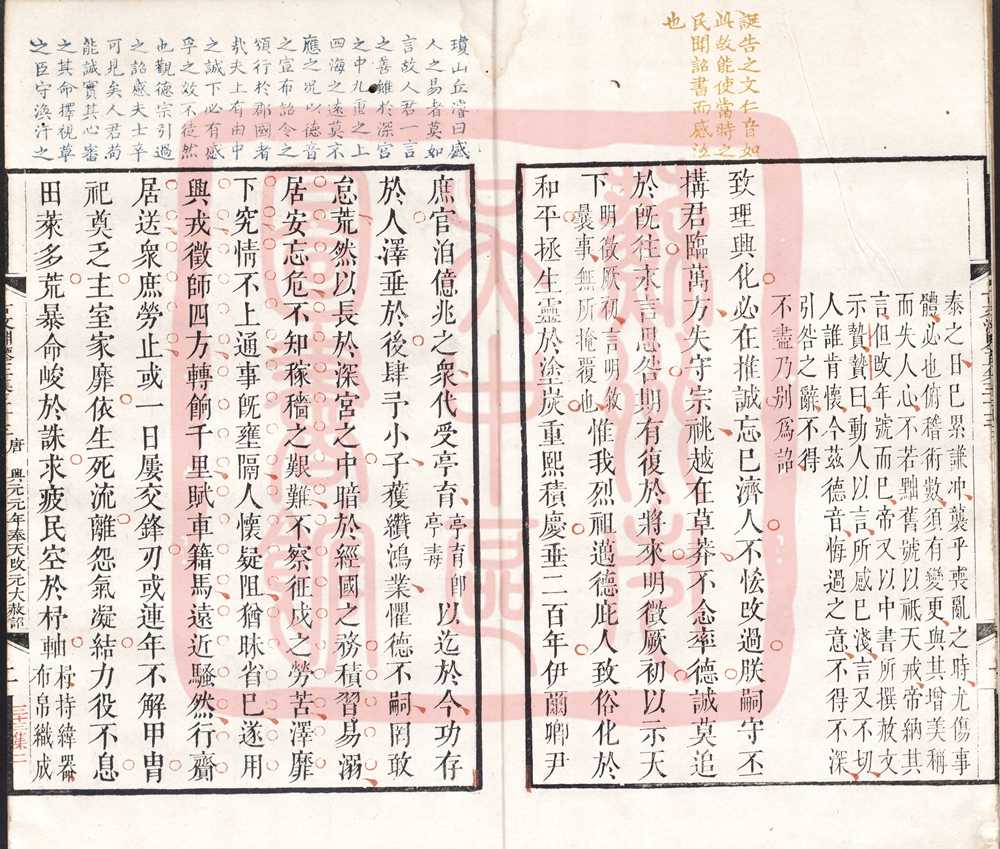 誕告之文仁音如
此故能使當時之
民聞詔書而感泣
也
秦之日已累謙沖襲乎喪亂之時尤傷事
體必也俯稽術數須有變更與其增美稱
而失人心不若黜舊號以祗天戒帝納其
言但改年號而已帝又以中書所撰赦文
示贄贄曰動人以言所感已淺言又不切
人誰肯懷今茲德音悔過之意不得不深
引咎之辭不得
不盡乃別為詔
致理興化必在推誠忘己濟人不恡改過朕嗣守丕
搆君臨萬方失守宗祧越在草莽不念率德誠莫追
於既往永言思咎期有復於將來明徵厥初以示天
下明徵厥初言明敘
曩事無所掩覆也惟我烈祖邁德庇人致俗化於
和平拯生靈於塗炭重熙積慶垂二百年伊爾卿尹
瓊山丘濬曰感
人之易者莫如
言故人君一言
之善雖於深宮
之中九重之上
四海之遠莫不
應之況以德音
之宣布詔令之
頒行於郡國者
哉夫上有由中
之誠下必有感
孚之效不徒然
也觀德宗引過
之詔感夫士卒
可見矣人君苟
能誠實其心審
之其命擇視草
之臣守渙汗之
庶官洎億兆之眾代受亭育亭育即
亭毒以迄於今功存
於人澤垂於後肆予小子獲纘鴻業懼德不嗣罔敢
怠荒然以長於深宮之中暗於經國之務積習易溺
居安忘危不知稼穡之艱難不察征戍之勞苦澤靡
下究情不上通事既壅隔人懷疑阻猶昧省己遂用
興戎徵師四方轉餉千里賦車籍馬遠近騷然行齎
居送眾庶勞止或一日屢交鋒刃或連年不解甲冑
祀奠乏主室家靡依生死流離怨氣凝結力役不息
田萊多荒暴命峻於誅求疲民空於杼軸杼持緯器
布帛織成
唐 興元元年奉天改元大赦詔
三十三集二